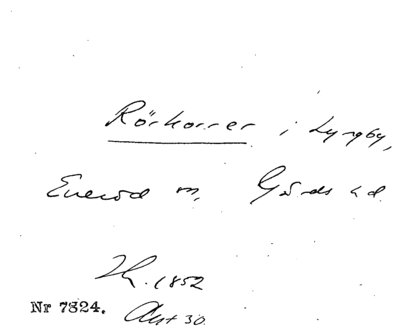 Rörkorrer i Lyngby,
Everöd m, Gärds hd.
Th. 1852
Nr 7324. Akt 30.